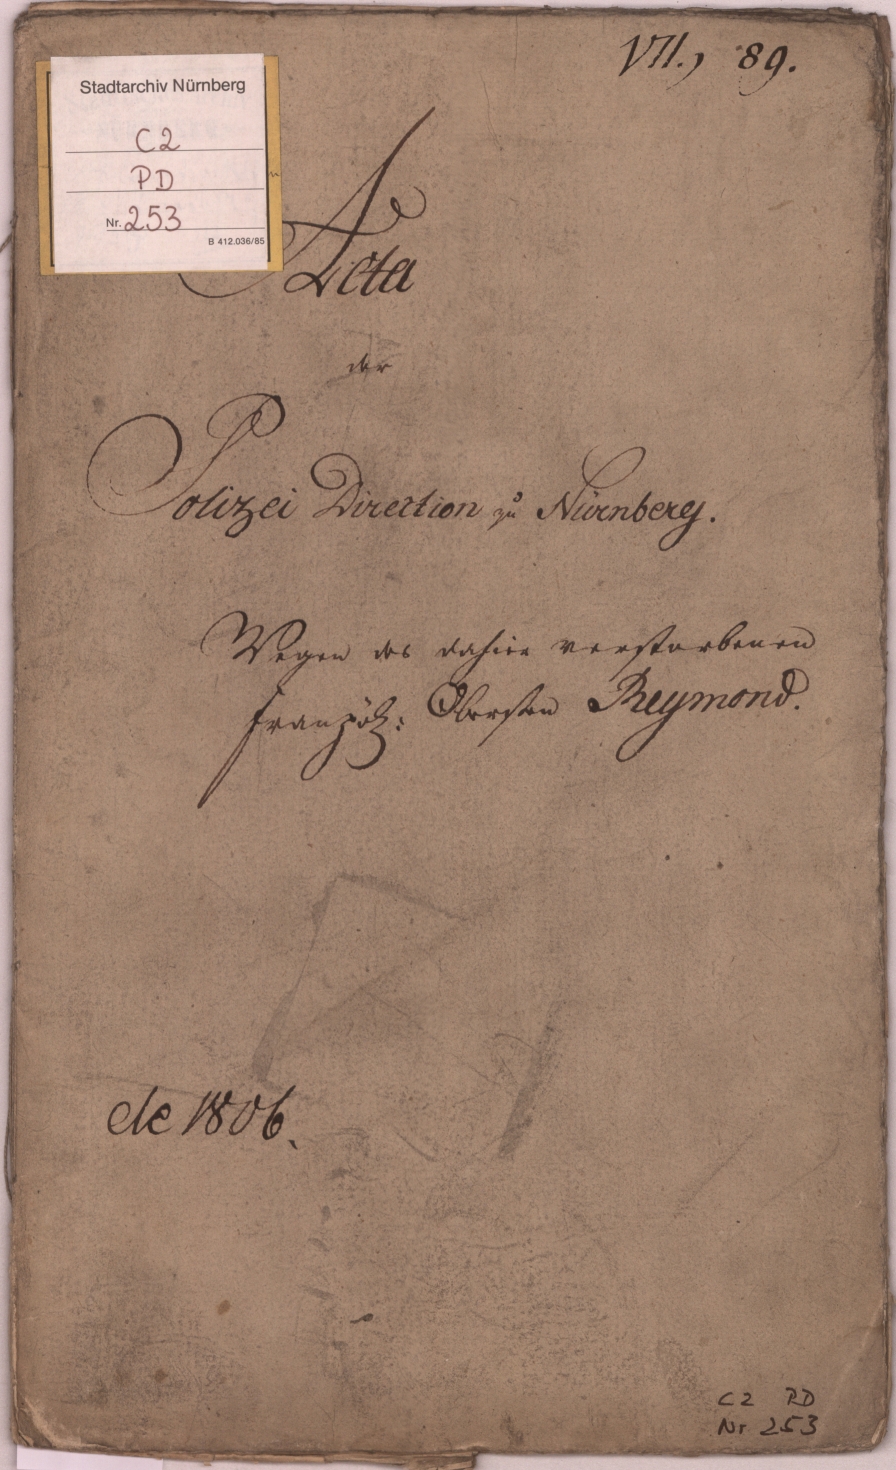 VII., 89.
Stadtarchiv Nürnberg
C2
PD
Nr. 253
B 412.036/85
Acta
der
Polizei Direction zu Nürnberg.
Wegen des dahier verstorbenen
französ: Obersten Reymond.
de 1806.
C2 PD
Nr 253